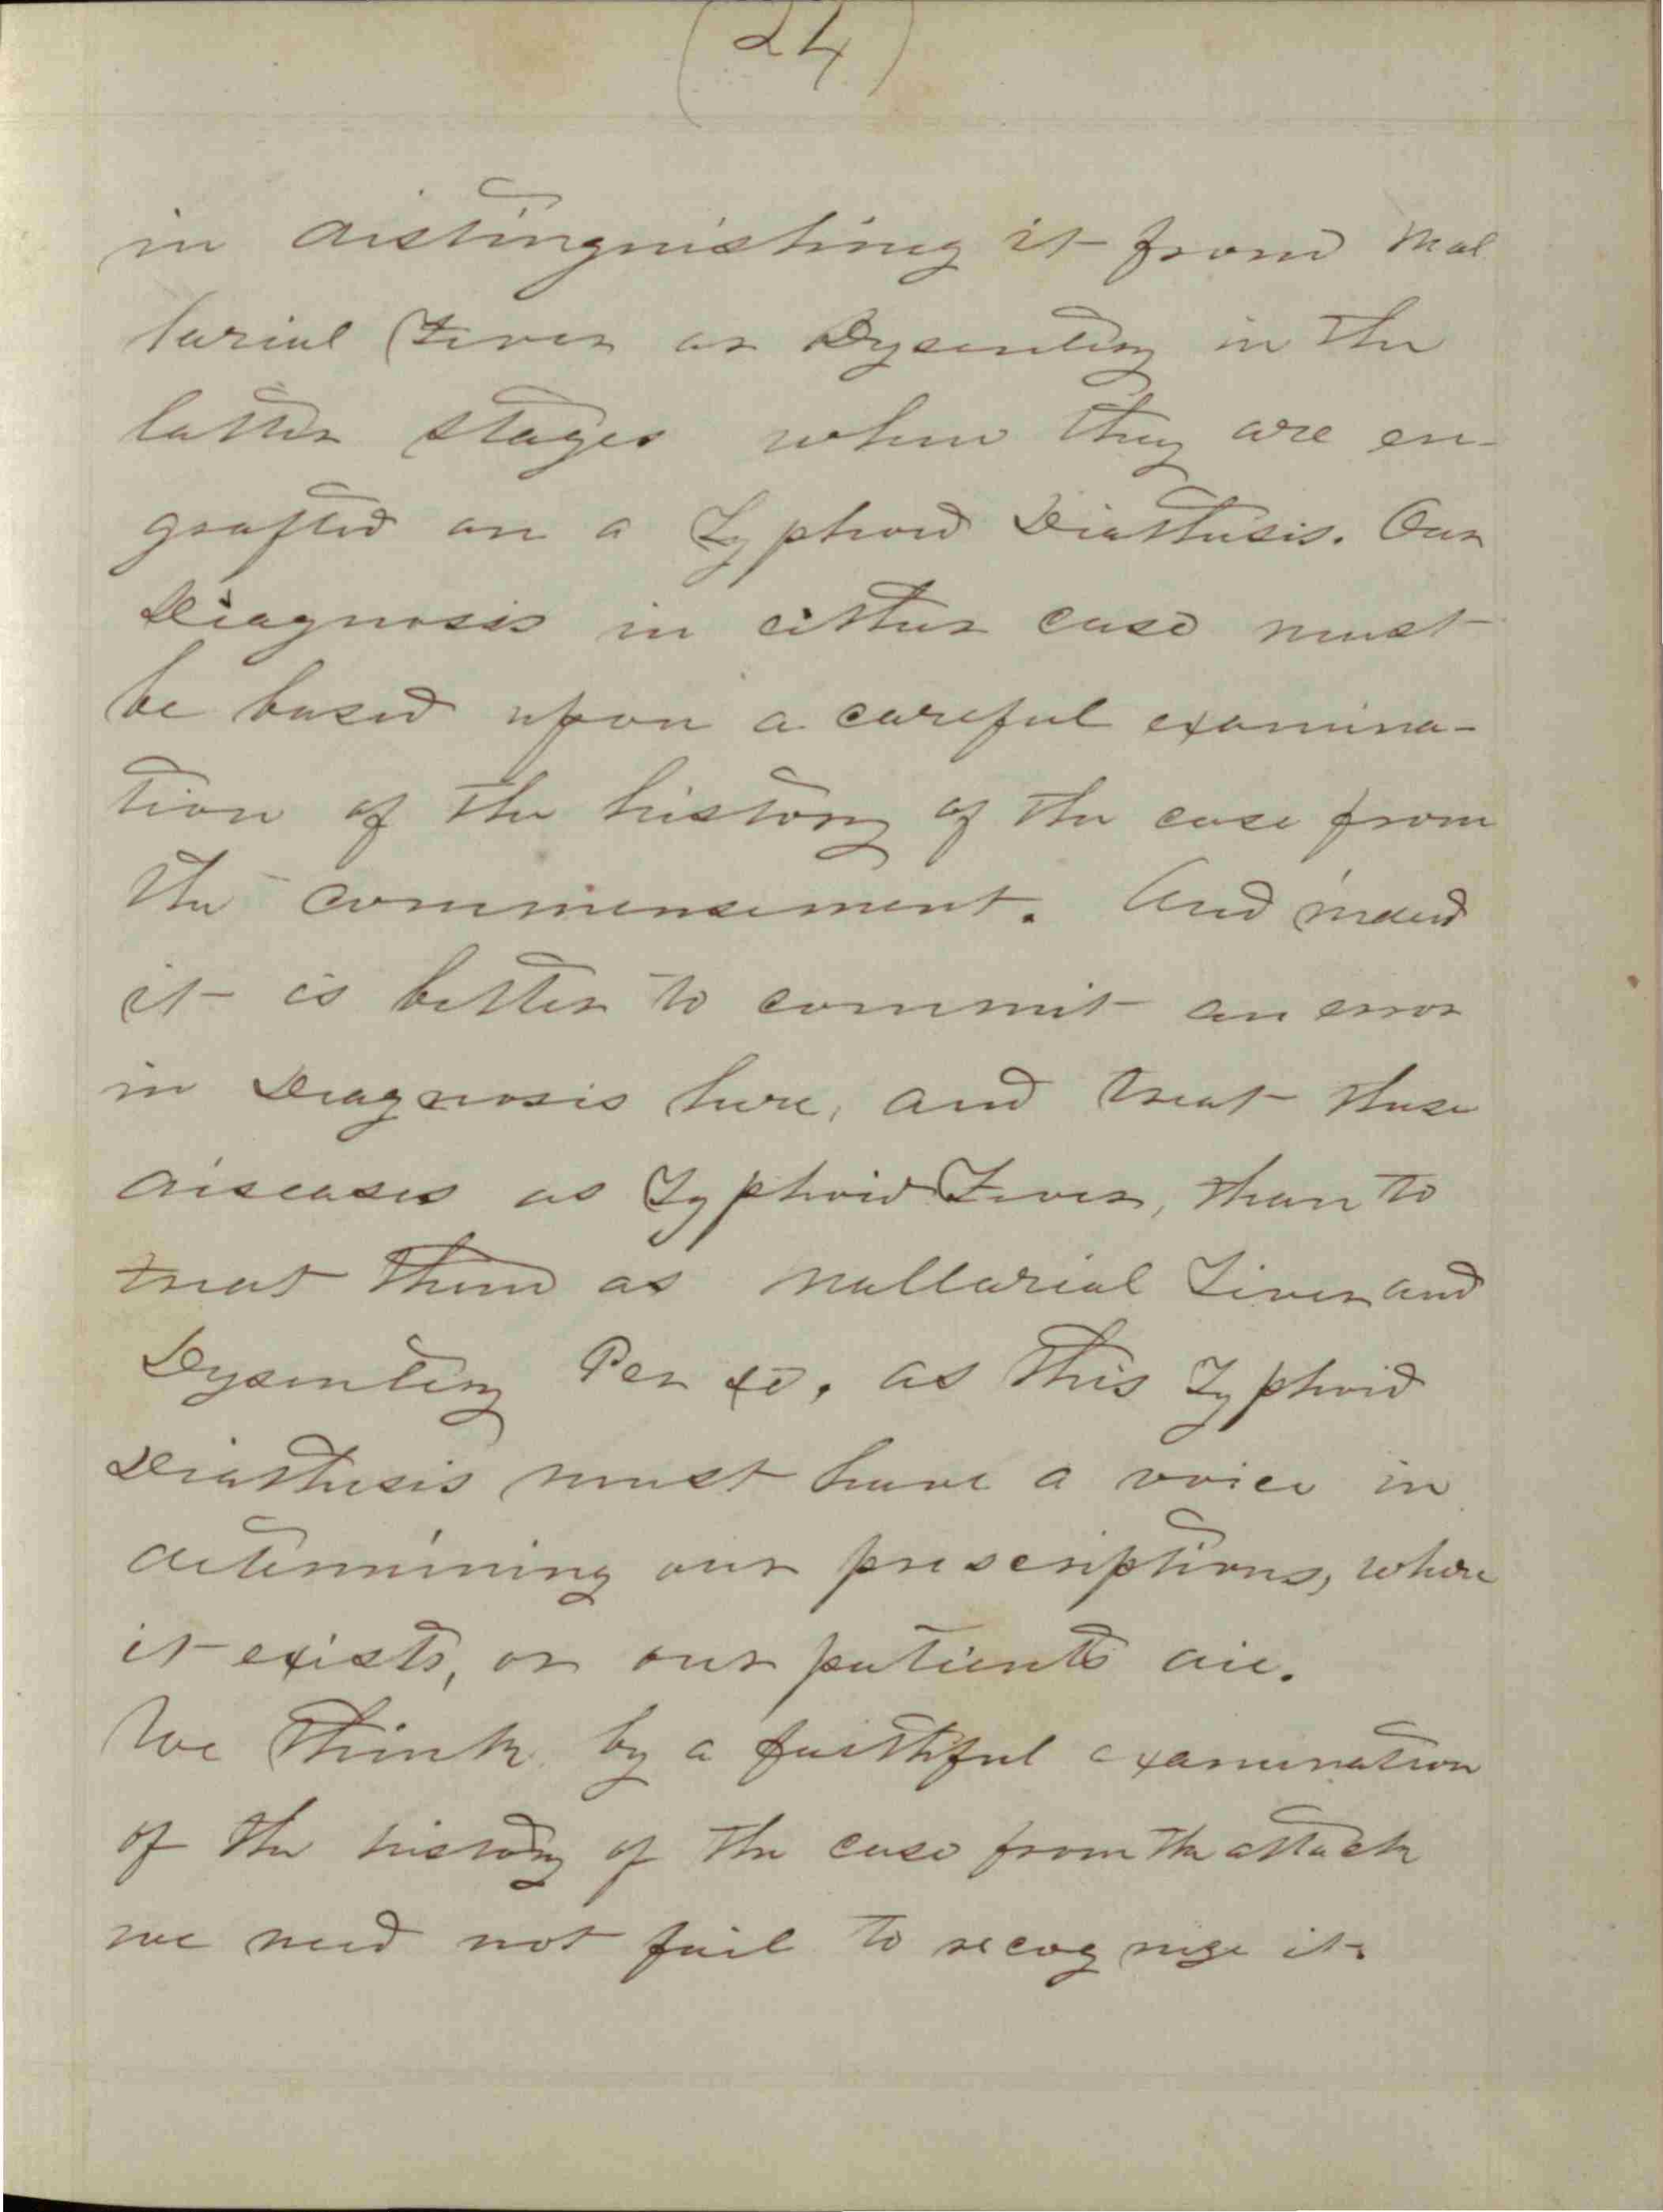 (24)
in distinguishing it from Mal
larial Fever or Dysentery in the
latter stages when they are en-
grafted on a Typhoid Diathesis. Our
Diagnosis in either case must
be based upon a careful examina-
tion of the history of the case from
the commensement. And indeed
it is better to commit an error
in Diagnosis here, and treat these
diseases as Typhoid Fever, than to
treat them as mallarial Fever and
Dysentery Per se, as this Typhoid
Diathesis must have a voice in
determining our prescriptions, where
it exists, or our patients die.
We think by a faithful examination
of the history of the case from the attack
we need not fail to recognize it.